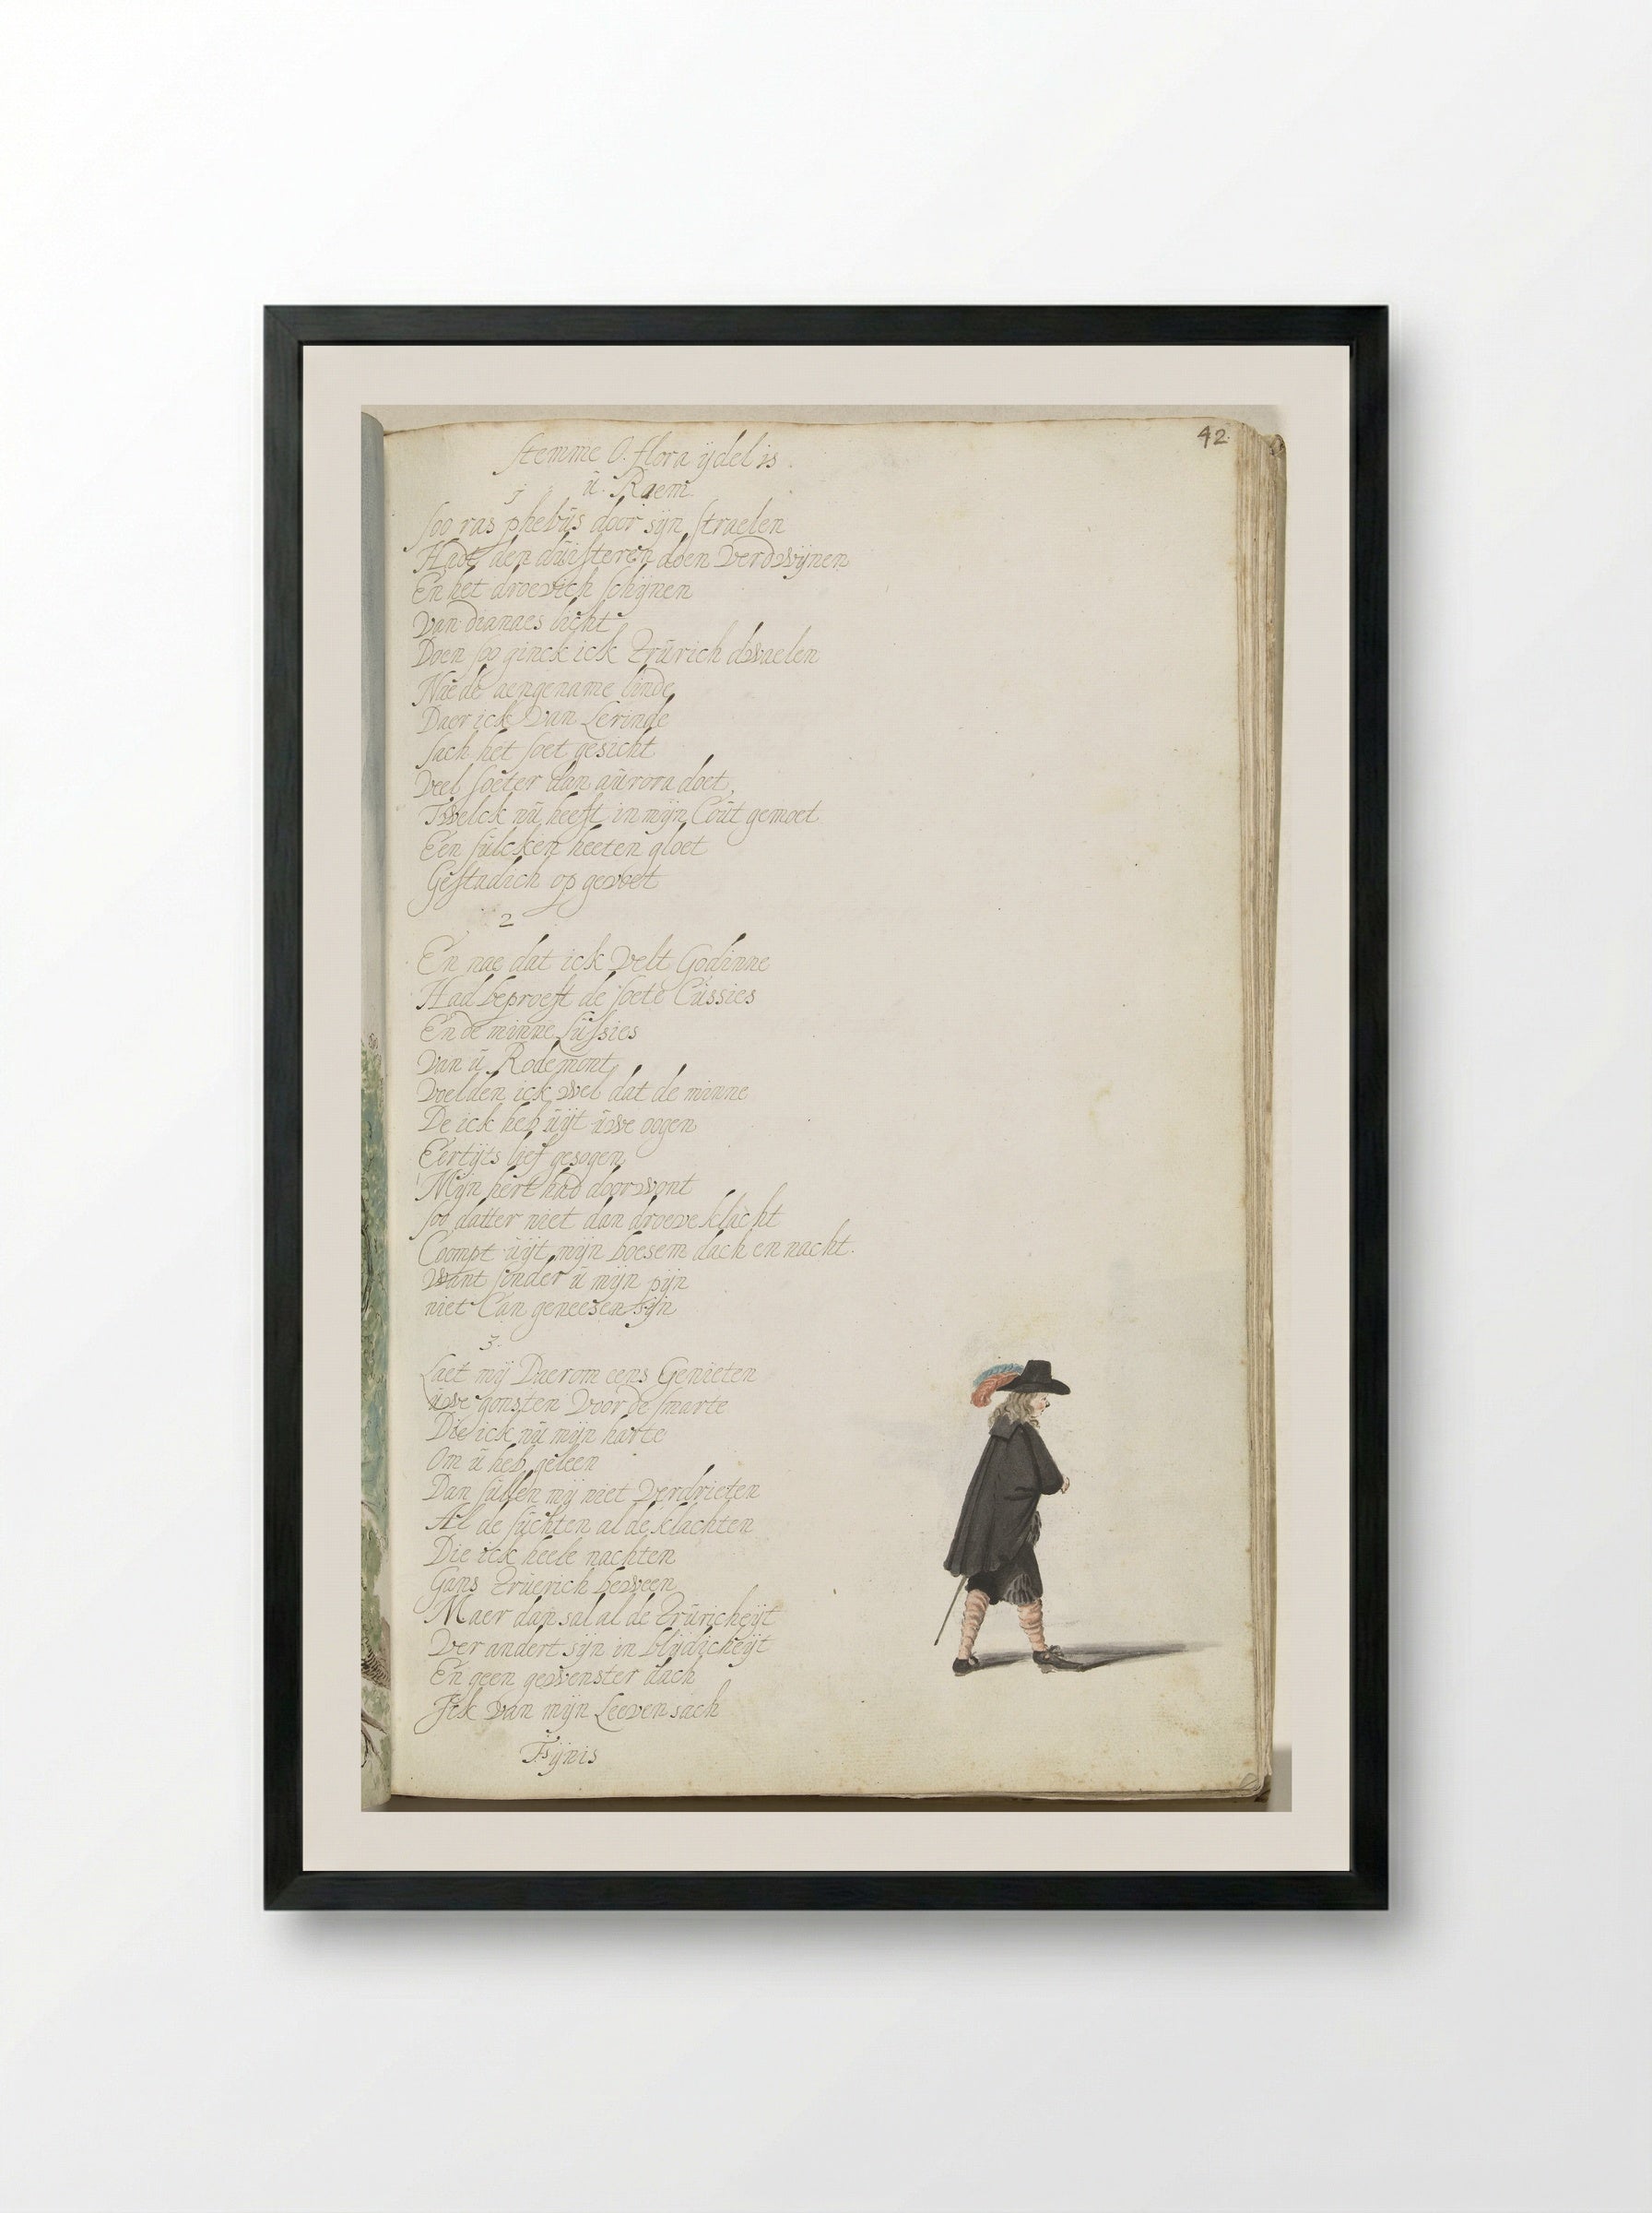 42
Stemme O. flora ijdel is
ú. Raem.
1
Soo ras phebús door sijn straelen
Hadt den dúisteren doen verdwijnen
En het droevich schijnen
Van dianaes licht
Doen soo ginck ick Trúrich dwaelen
Nae de aengename linde
Daer ick van Lerinde
Sach het soet gesicht
Veel soeter dan aúrora doet,
Twelck nú heeft in mijn Coút gemoet
Een súlcken heeten gloet
Gestadich op gevoet
2
En nae dat ick velt Godinne
Had beproeft de soete Cússies
En de minne Lússies
Van ú Rodemont
Voelden ick wel dat de minne
De ick heb úijt úwe oogen
Eertijts lief gesogen
Mijn hert had doorwont
Soo datter niet dan droeve klacht
Coompt úijt mijn boesem dach en nacht.
Want sonder ú mijn pijn
niet Can geneesen sijn
3
Laet mij Daerom eens Genieten
úwe gonsten Voor de smarte
Die ick nú mijn harte
Om ú heb geleen
Dan súllen mij niet verdrieten
Al de súchten al de klachten
Die ick heele nachten
Gans Trúerich beween
Maer dan sal al de Trúricheijt
Ver andert sijn in blijdicheijt
En geen gewenster dach
Ick van mijn Leeven sach
Fijnis